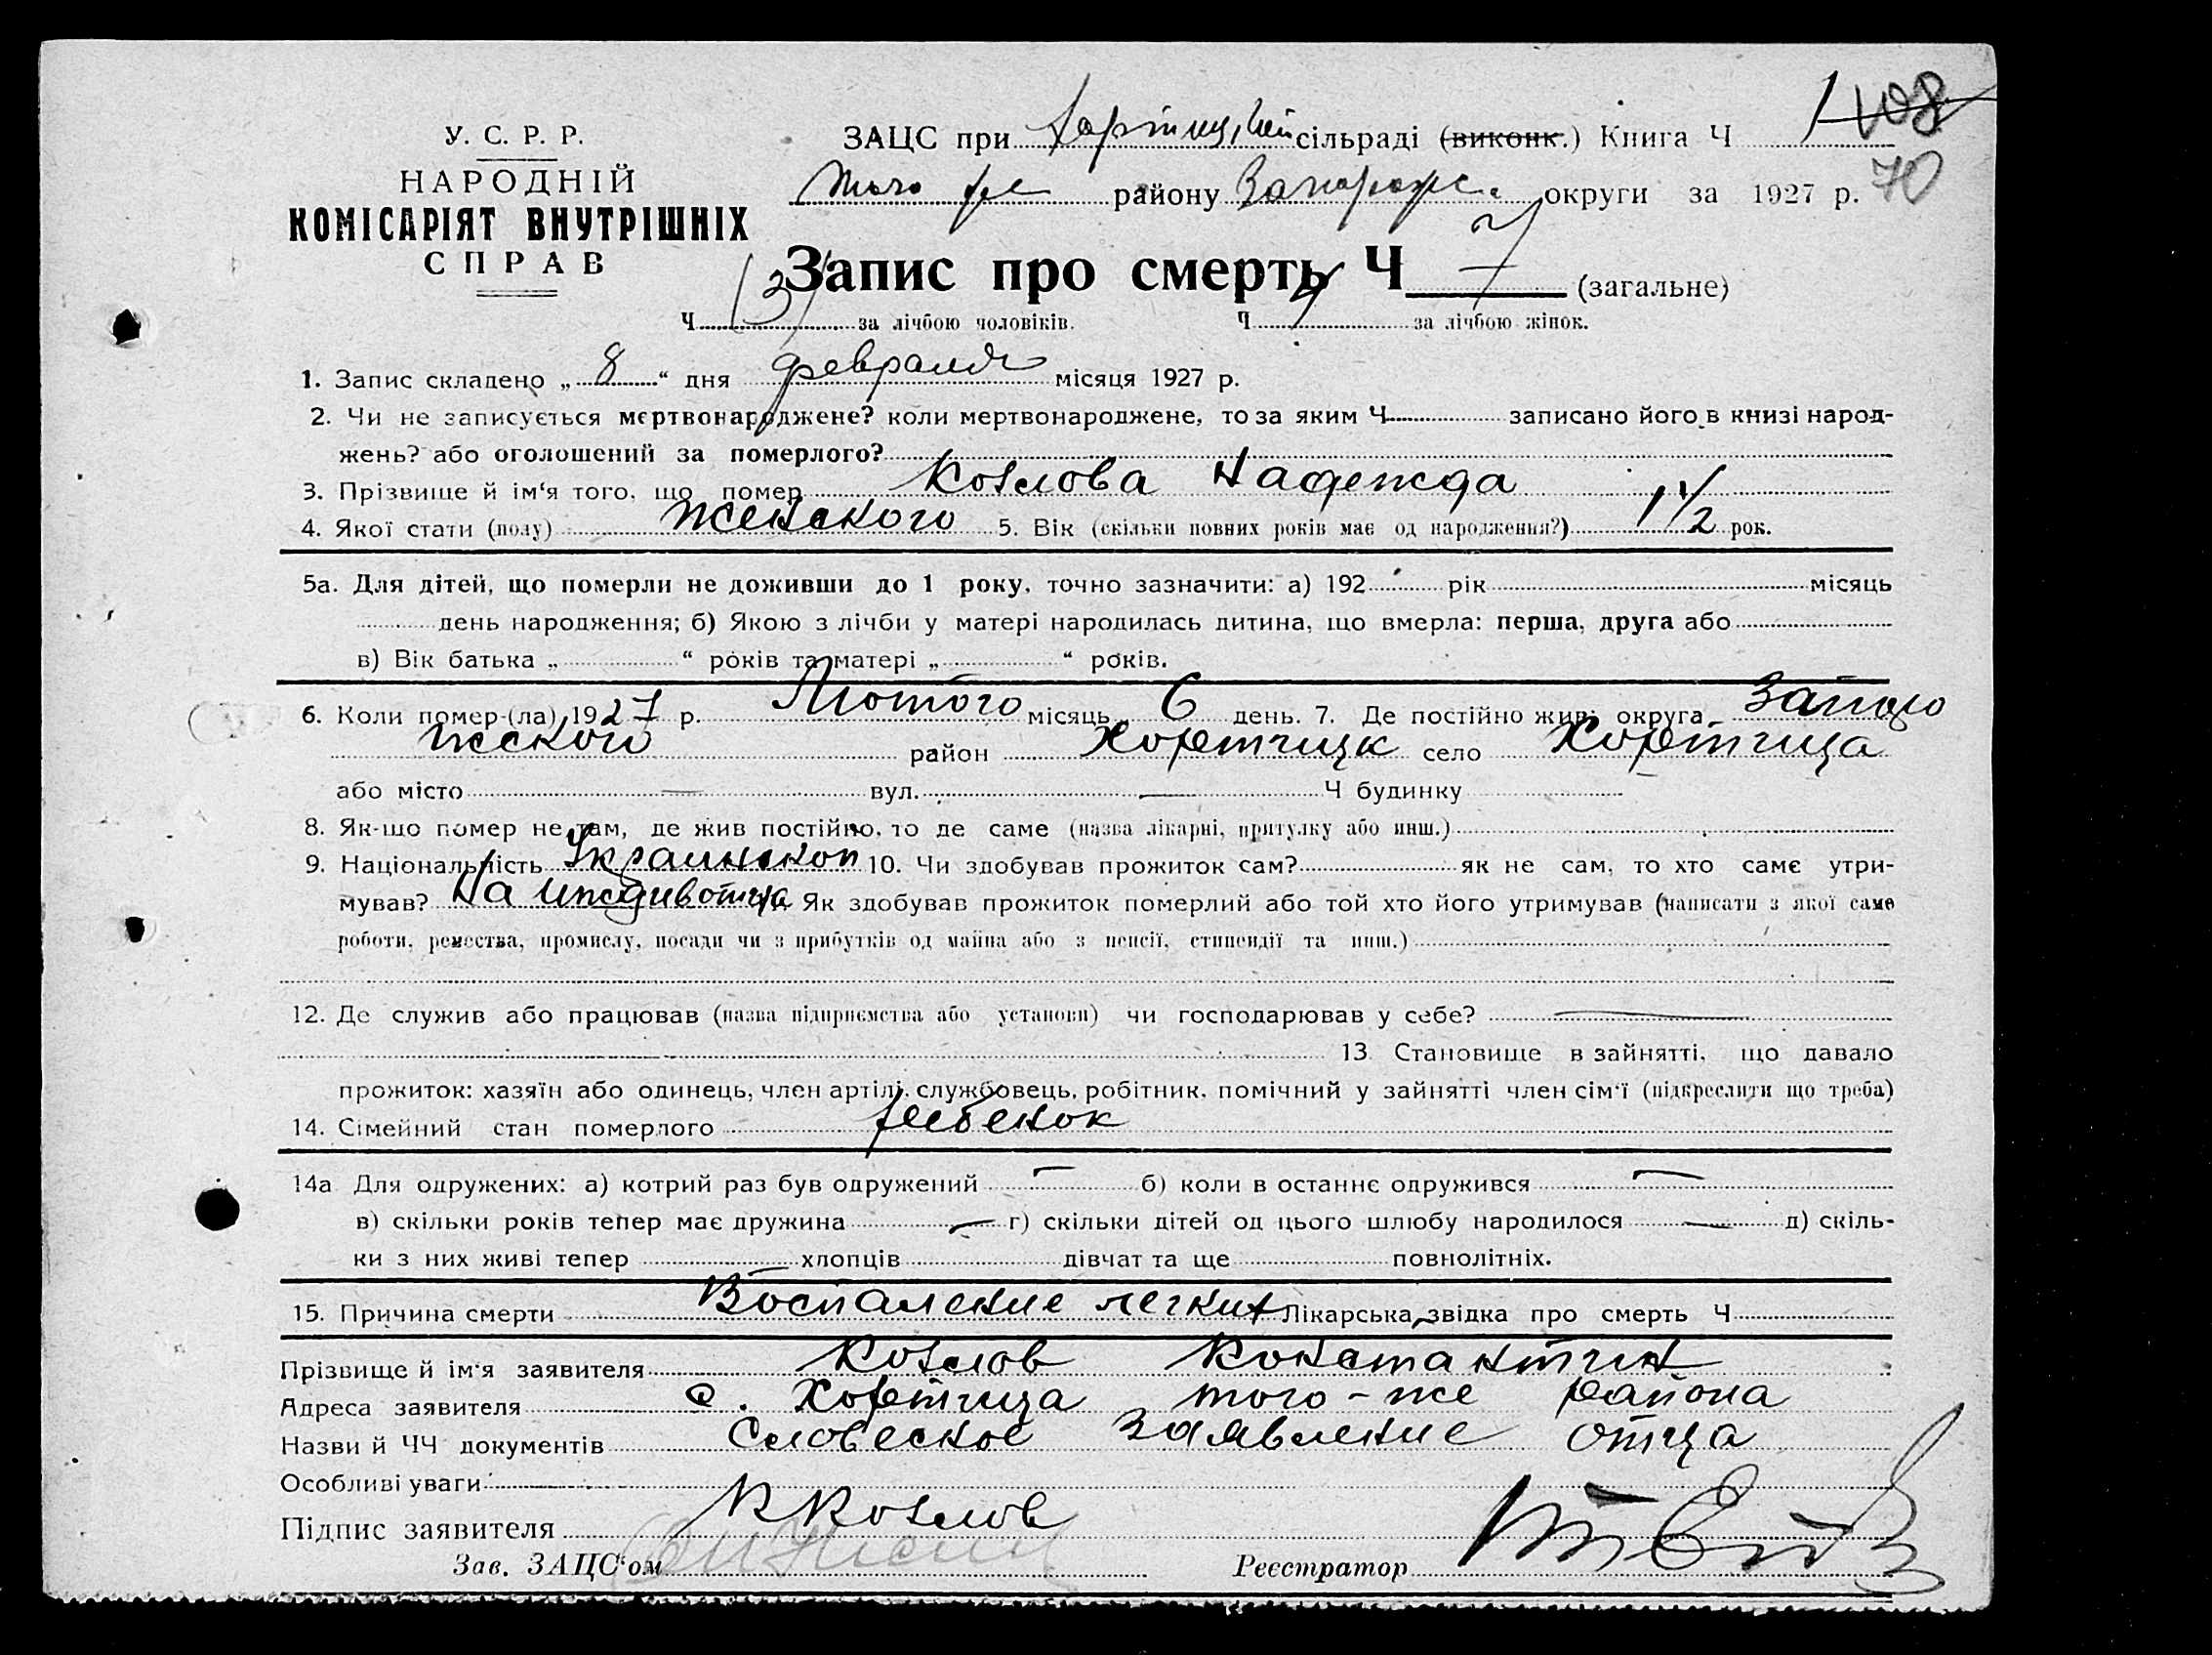 У. С. Р. Р.
НАРОДНІЙ
КОМІСАРІЯТ ВНУТРІШНІХ
СПРАВ
ЗАЦС при сільраді (виконк.) Книга Ч 1 108
того же району Запорож. округи за 1927 р. 70
Запис про смерть Ч 7 (загальне)
Ч 3 за лічбою чоловіків. Ч за лічбою жінок.
1. Запис складено „ 8 “ дня февраля місяця 1927 р.
2. Чи не записується мертвонароджене? коли мертвонароджене, то за яким Ч записано його в книзі народ-
жень? або оголошений за померлого?
3. Прізвище й ім‘я того, що помер Козлова Надежда
4. Якої стати (полу) Женского 5. Вік (скільки повних років має од народження?) 1 1/2 рок.
5а. Для дітей, що померли не доживши до 1 року, точно зазначити: а) 192 рік місяць
день народження; б) Якою з лічби у матері народилась дитина, що вмерла: перша, друга або
в) Вік батька „ “ років та матері „ “ років.
6. Коли помер-(ла) 1927 р. Лютого місяць 6 день. 7. Де постійно жив: округа Запоро
жского район Хортицк село Хортица
або місто — вул. — Ч будинку
8. Як-що помер не там, де жив постійно, то де саме (назва лікарні, притулку або инш.)
9. Національність Украинской 10. Чи здобував прожиток сам? як не сам, то хто саме утри-
мував? На иждив отца Як здобував прожиток померлий або той хто його утримував (написати з якої саме
роботи, ремества, промислу, посади чи з прибутків од майна або з пенсії, стипендії та инш.)
12. Де служив або працював (назва підприємства або установи) чи господарював у себе? —
13. Становище в зайнятті, що давало
прожиток: хазяїн або одинець, член артілі, службовець, робітник, помічний у зайнятті член сім‘ї (підкреслити що треба)
14. Сімейний стан померлого ребенок
14а Для одружених: а) котрий раз був одружений — б) коли в останнє одружився —
в) скільки років тепер має дружина — г) скільки дітей од цього шлюбу народилося — д) скіль-
ки з них живі тепер хлопців дівчат та ще повнолітніх.
15. Причина смерти Воспаление легких Лікарська звідка про смерть Ч
Прізвище й ім‘я заявителя Козлов Константин
Адреса заявителя с. Хортица того-же района
Назви й ЧЧ документів Словеское заявление отца
Особливі уваги
Підпис заявителя К Козлов
Зав. ЗАЦС‘ом Реєстратор